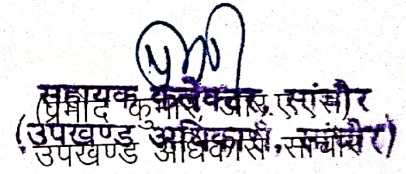 सहायक कलेक्टर, सांचौर
(प्रमोद कुमार, आर.ए.एस)
(उपखण्ड अधिकारी, सांचौर)
उपखण्ड अधिकारी सांचौर